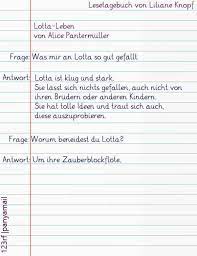 Lesetagebuch von Liliane Knopf
Lotta-Leben
von Alice Pantermüller
Frage: Was mir an Lotta so gut gefällt
Antwort: Lotta ist klug und stark.
Sie lässt sich nichts gefallen, auch nicht von
ihren Brüdern oder anderen Kindern.
Sie hat tolle Ideen und traut sich auch,
diese auszuprobieren.
Frage: Worum beneidest du Lotta?
Antwort: Um ihre Zauberblockflöte.
123rf|panyamail